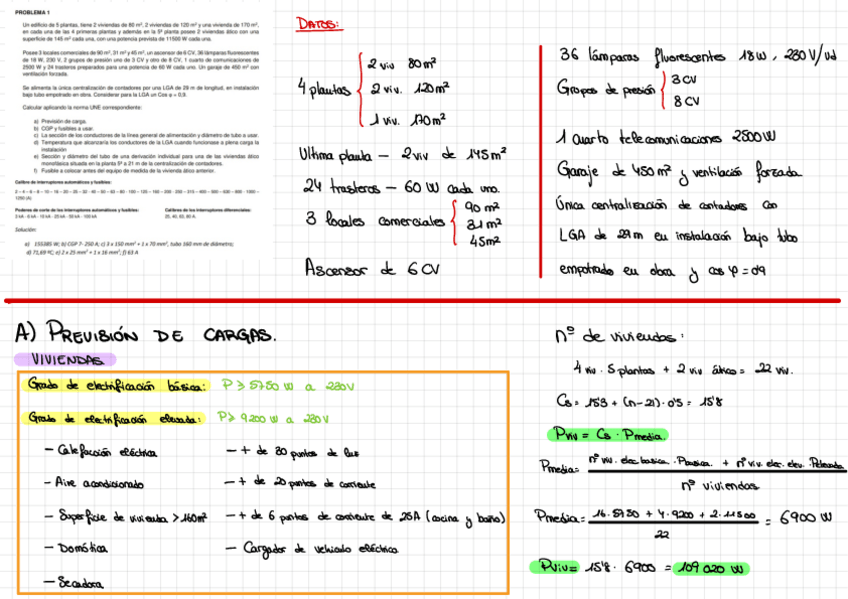 PROBLEMA 1
Un edificio de 5 plantas, tiene 2 viviendas de 80 m², 2 viviendas de 120 m² y una vivienda de 170 m²,
en cada una de las 4 primeras plantas y además en la 5ª planta posee 2 viviendas ático con una
superficie de 145 m² cada una, con una potencia prevista de 11500 W cada una.
Posee 3 locales comerciales de 90 m², 31 m² y 45 m², un ascensor de 6 CV, 36 lámparas fluorescentes
de 18 W, 230 V, 2 grupos de presión uno de 3 CV y otro de 8 CV, 1 cuarto de comunicaciones de
2500 W y 24 trasteros preparados para una potencia de 60 W cada uno. Un garaje de 450 m² con
ventilación forzada.
Se alimenta la única centralización de contadores por una LGA de 29 m de longitud, en instalación
bajo tubo empotrado en obra. Considerar para la LGA un Cos φ = 0,9.
Calcular aplicando la norma UNE correspondiente:
a) Previsión de carga.
b) CGP y fusibles a usar.
c) La sección de los conductores de la línea general de alimentación y diámetro de tubo a usar.
d) Temperatura que alcanzaría los conductores de la LGA cuando funcionase a plena carga la
instalación
e) Sección y diámetro del tubo de una derivación individual para una de las viviendas ático
monofásica situada en la planta 5ª a 21 m de la centralización de contadores.
f) Fusible a colocar antes del equipo de medida de la vivienda ático anterior.
Calibre de interruptores automáticos y fusibles:
Poderes de corte de los interruptores automáticos y fusibles:
Calibres de los interruptores diferenciales:
3 kA - 6 kA - 10 kA - 20 kA - 50 kA - 100 kA
25, 40, 63, 80 A.
Solución:
a) 155385 W; b) CGP 7- 250 A; c) 3 x 150 mm² + 1 x 70 mm², tubo 160 mm de diámetro;
d) 71,69 ºC; e) 2 x 25 mm² + 1 x 16 mm²; f) 63 A
DATOS:
4 plantas
2 viv 80 m²
2 viv. 120 m²
1 viv. 170 m²
Ultima planta — 2 viv de 145 m²
24 trasteros — 60 W cada uno.
3 locales comerciales
90 m²
31 m²
45 m²
Ascensor de 6 CV
36 lámparas fluorescentes 18 W, 230 V/ud
Grupos de presión
3 CV
8 CV
1 cuarto telecomunicaciones 2500 W
Garaje de 450 m² y ventilación forzada
Única centralización de contadores con
LGA de 29 m en instalación bajo tubo
empotrado en obra y cos φ = 0'9
A) PREVISIÓN DE CARGAS.
VIVIENDAS
Grado de electrificación básica: P ≥ 5750 W a 230 V
Grado de electrificación elevada: P ≥ 9200 W a 230 V
— Calefacción eléctrica
— Aire acondicionado
— Superficie de vivienda > 160 m²
— Domótica
— Secadora
— + de 30 puntos de luz
— + de 20 puntos de corriente
— + de 6 puntos de corriente de 25A (cocina y baño)
— Cargador de vehículo eléctrico
nº de viviendas:
4 viv · 5 plantas + 2 viv ático = 22 viv.
Cs = 15'3 + (n-21) · 0'5 = 15'8
Pviv = Cs · Pmedia.
Pmedia = nº viv. elec basica · Pbasica. + nº viv. elec. elev. · Pelevada
nº viviendas
Pmedia = 16 · 5750 + 4 · 9200 + 2 · 11500 = 6900 W
22
Pviv = 15'8 · 6900 = 109 020 W